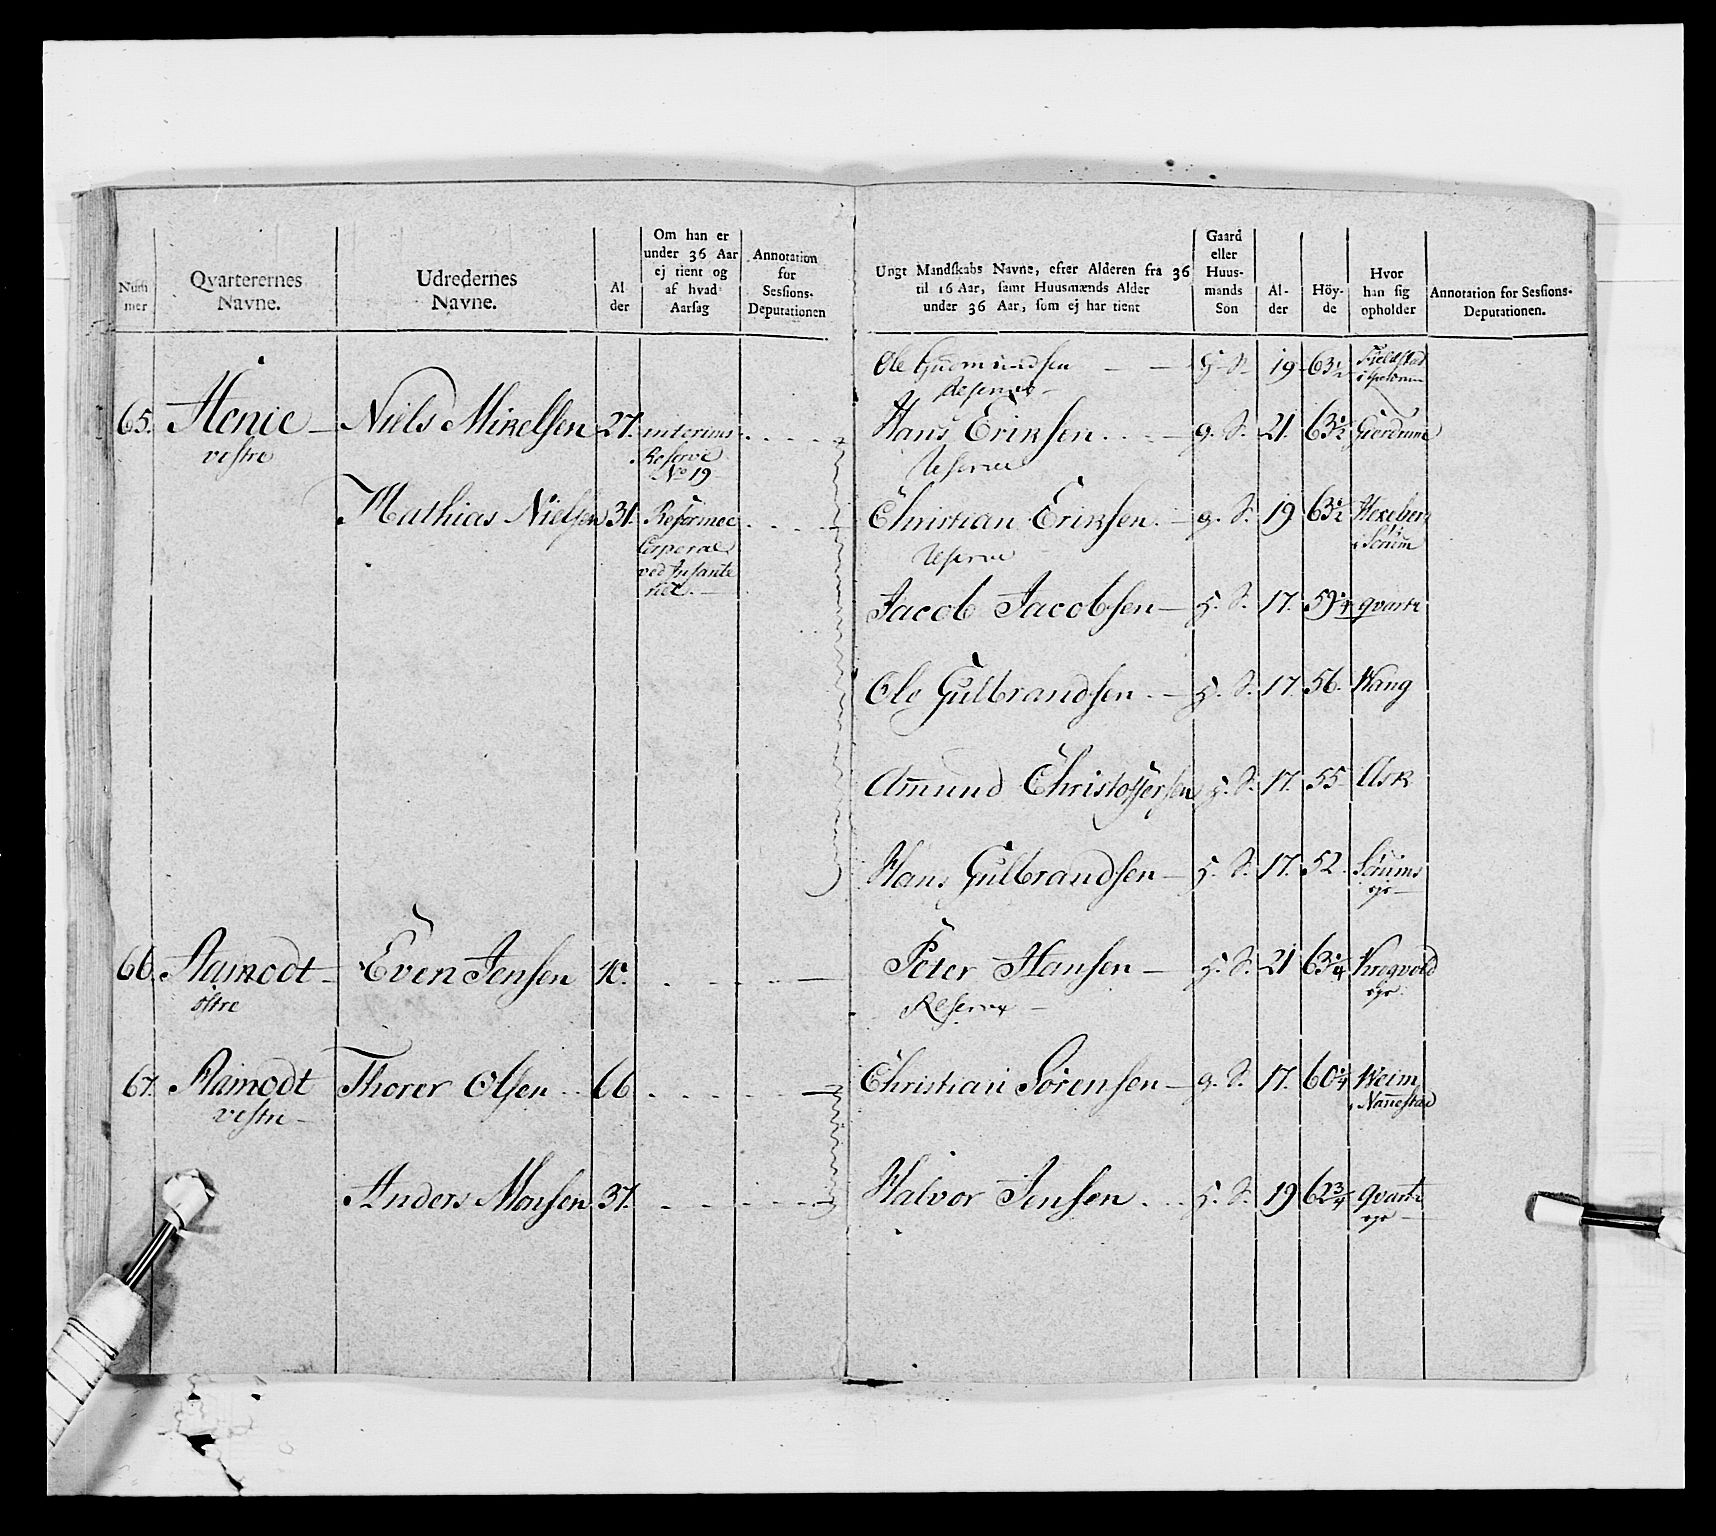 Num
mer
Qvarterernes
Navne.
Udredernes
Navne.
Al
der
Om han er
under 36 Aar
ej tient og
af hvad
Aarsag
Annotation
for
Sessions-
Deputationen
Ungt Mandskabs Navne, efter Alderen fra 36
til 16 Aar, samt Huusmænds Alder
under 36 Aar, som ej har tient
Gaard
eller
Huus-
mands
Son
Al-
der
Höy-
de
Hvor
han sig
opholder
Annotation for Sessions-
Deputationen.
Ole Gudmundsen - - H. S. 19 63 1/2
Reserve
65. Henie - Niels Mikelsen 27. interims Hans Eriksen. g. S. 21. 63 1/2 Gierdrum
vestre Reserve Reserve
No 19
Mathias Nielsen 31. Reformee Christian Eriksen. g. S. 19 63 1/2 Hexeberg
Corporal Reserve i Sørum
ved Infante
riet.
Jacob Jacobsen - H. S. 17. 59 1/4 qvarte
Ole Gulbrandsen. - H. S. 17. 56. Wang
Amund Christoffersen H. S. 17. 55 Ask
Hans Gulbrandsen - H. S. 17. 52. Sørums
eje
66. Aamodt - Even Jensen 40. Peter Hansen - H. S. 21 63 1/4 Krogvold
östre Reserve eje
67. Aamodt Thorer Olsen 66 Christian Sörensen - g. S. 17. 60 1/4
vestre i Nannestad
Anders Monsen 37. Halvor Jensen. H. S. 19 62 3/4 qvarte
eje